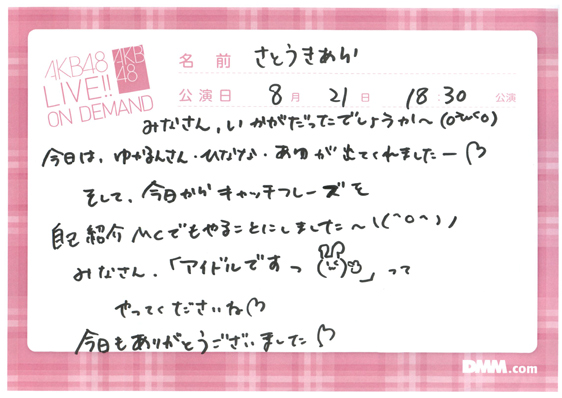 AKB48
LIVE!!
ON DEMAND
AKB
48
名 前 さとうきあら
公演日 8月 21日 18:30 公演
みなさん、いかがだったでしょうか〜(o^ω<o)
今日は、ゆかるんさん・ひななな・あゆが出てくれましたー♡
そして、今日からキャッチフレーズを
自己紹介MCでもやることにしました〜\(^o^)/
みなさん、「アイドルですっ 」って
やってくださいね♡
今日もありがとうございました♡
DMM.com